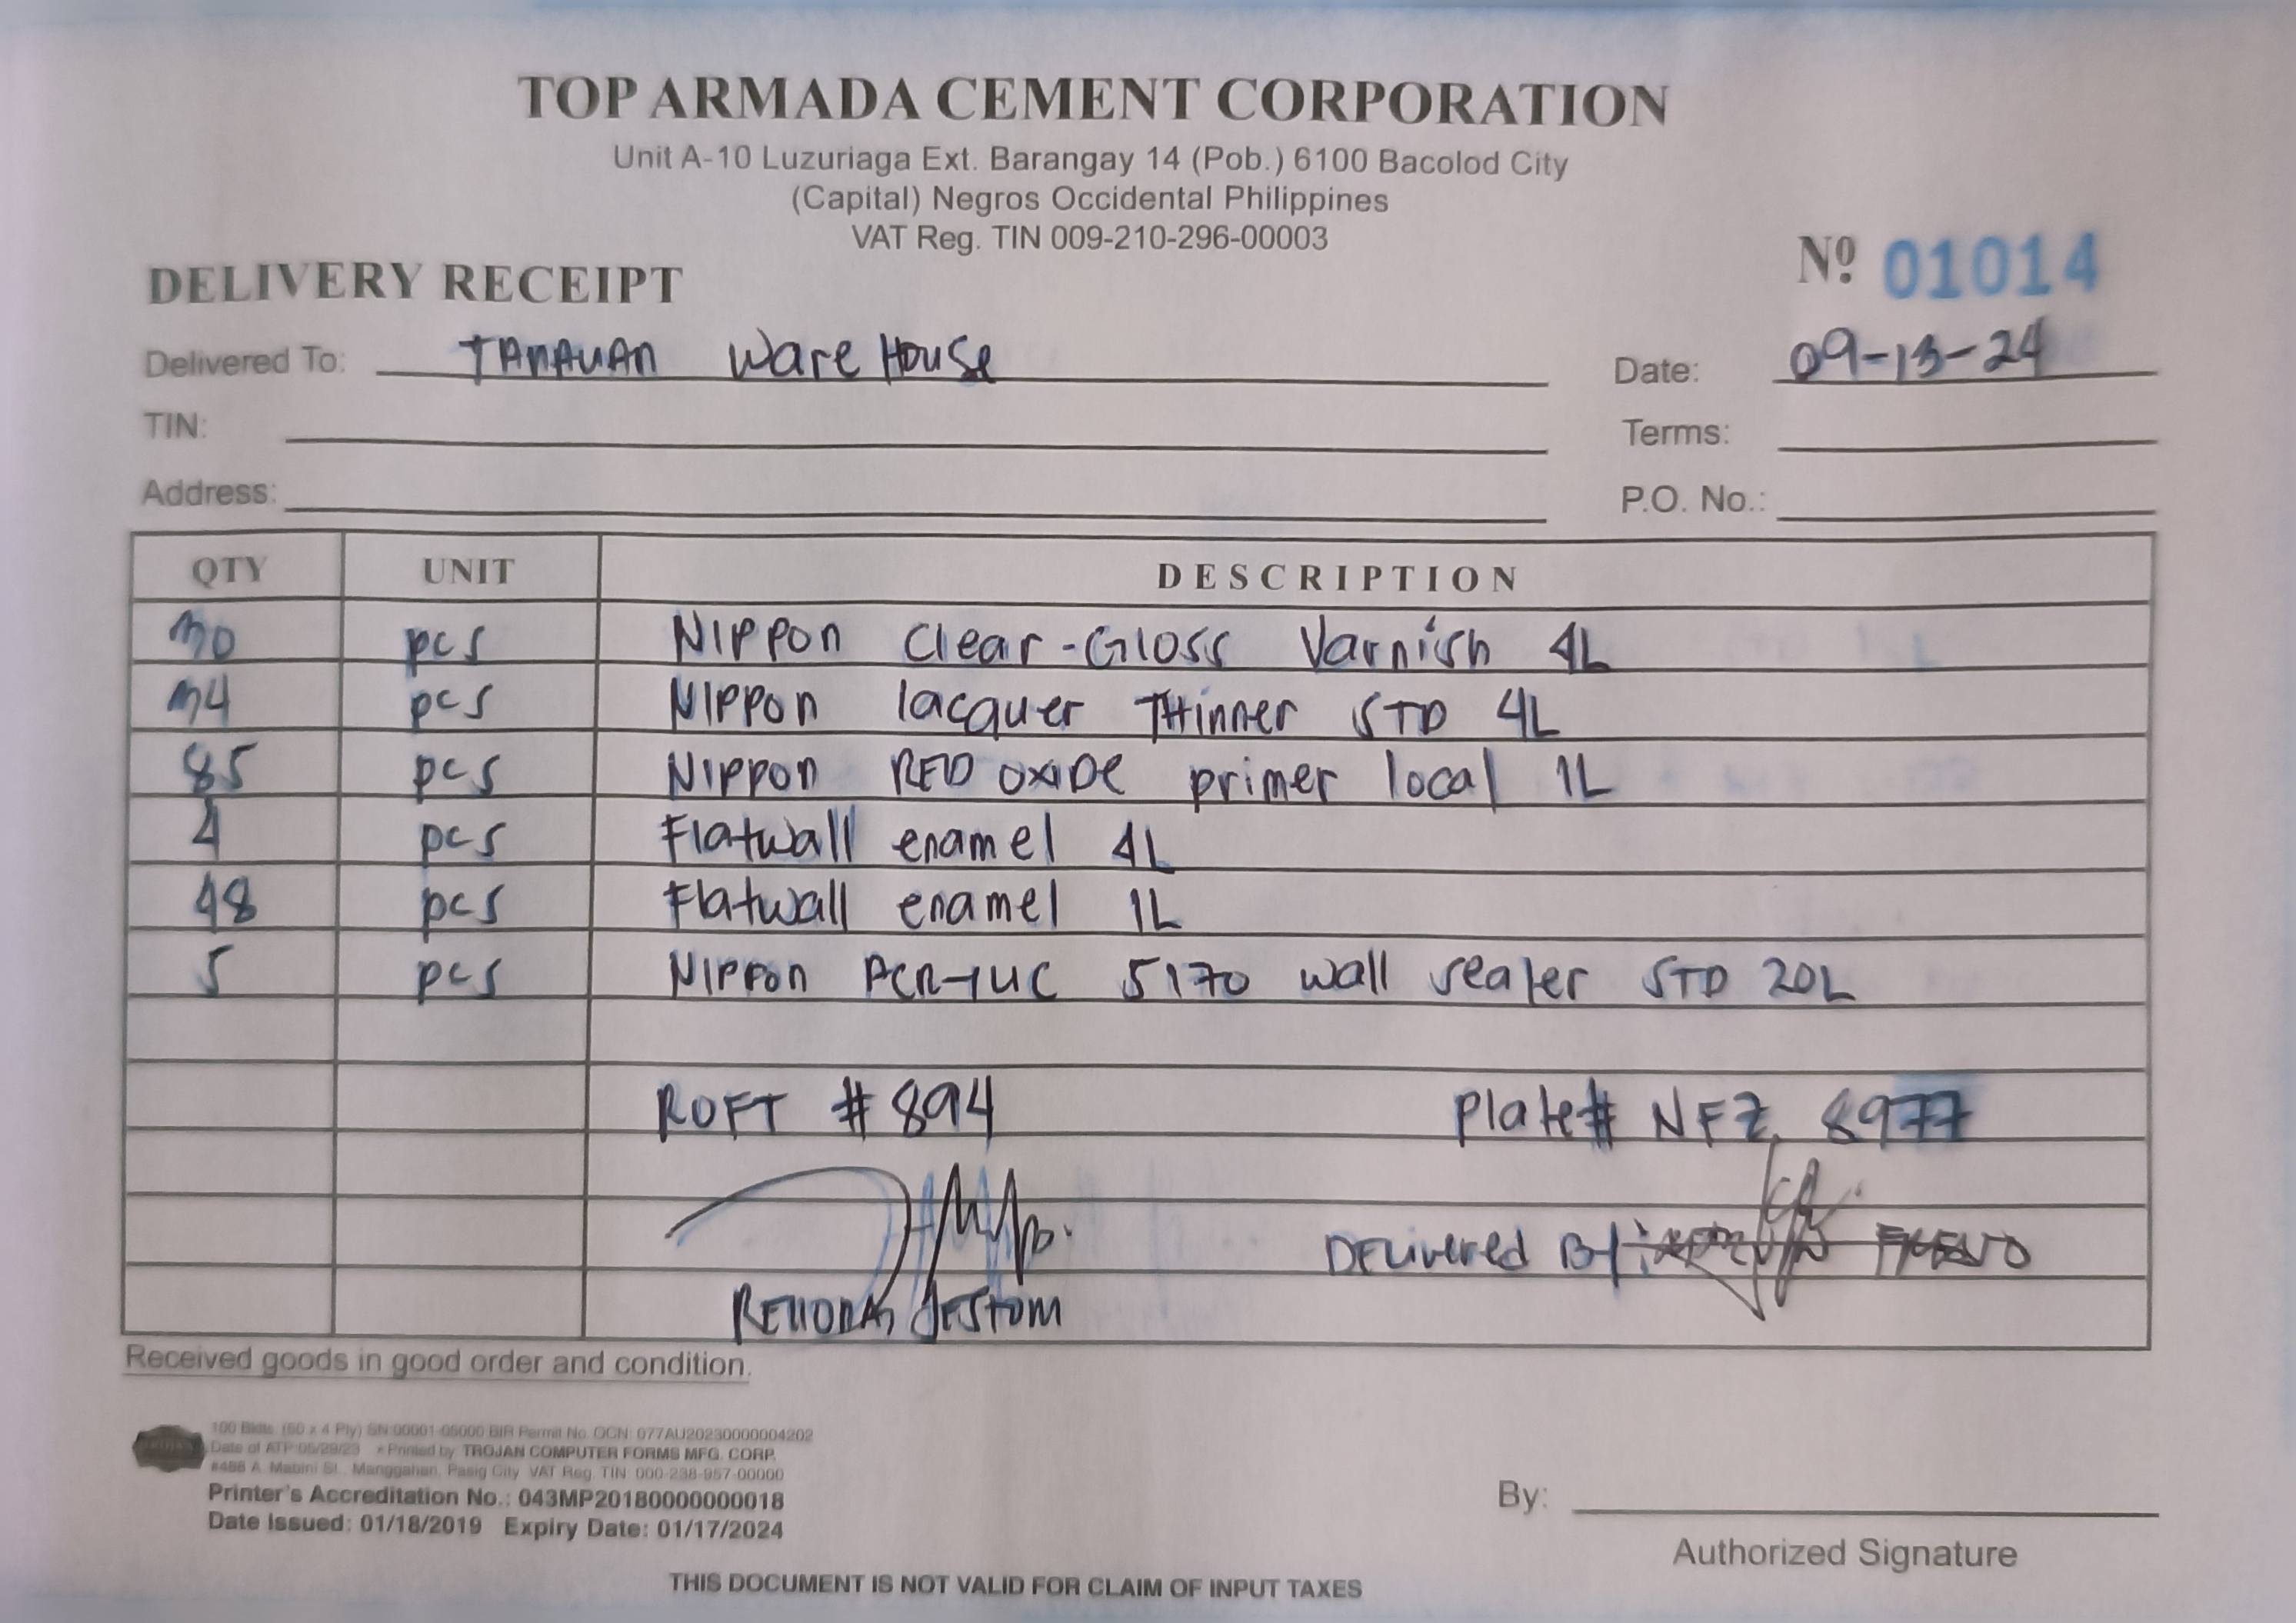 TOP ARMADA CEMENT CORPORATION
Unit A-10 Luzuriaga Ext. Barangay 14 (Pob.) 6100 Bacolod City
(Capital) Negros Occidental Philippines
VAT Reg. TIN 009-210-296-00003
DELIVERY RECEIPT Nº 01014
Delivered To: TANAUAN Ware House Date: 09-13-24
TIN: Terms:
Address: P.O. No.:
QTY UNIT DESCRIPTION
30 pcs NIPPON Clear-Gloss Varnish 4L
34 pcs NIPPON lacquer THinner STD 4L
85 pcs NIPPON RED OXIDE primer local 1L
4 pcs Flatwall enamel 4L
48 pcs Flatwall enamel 1L
5 pcs NIPPON 5170 wall sealer STD 20L
ROFT #894 Plate# NFZ 8977
DELivered By:
JESTOM
Received goods in good order and condition.
100 Bklts. (50 x 4 Ply) SN:00001-05000 BIR Permit No. OCN: 077AU20230000004202
Date of ATP:05/29/23 • Printed by: TROJAN COMPUTER FORMS MFG. CORP.
#468 A. Mabini St., Manggahan, Pasig City VAT Reg. TIN: 000-238-957-00000
Printer's Accreditation No.: 043MP20180000000018
Date Issued: 01/18/2019 Expiry Date: 01/17/2024
By:
Authorized Signature
THIS DOCUMENT IS NOT VALID FOR CLAIM OF INPUT TAXES